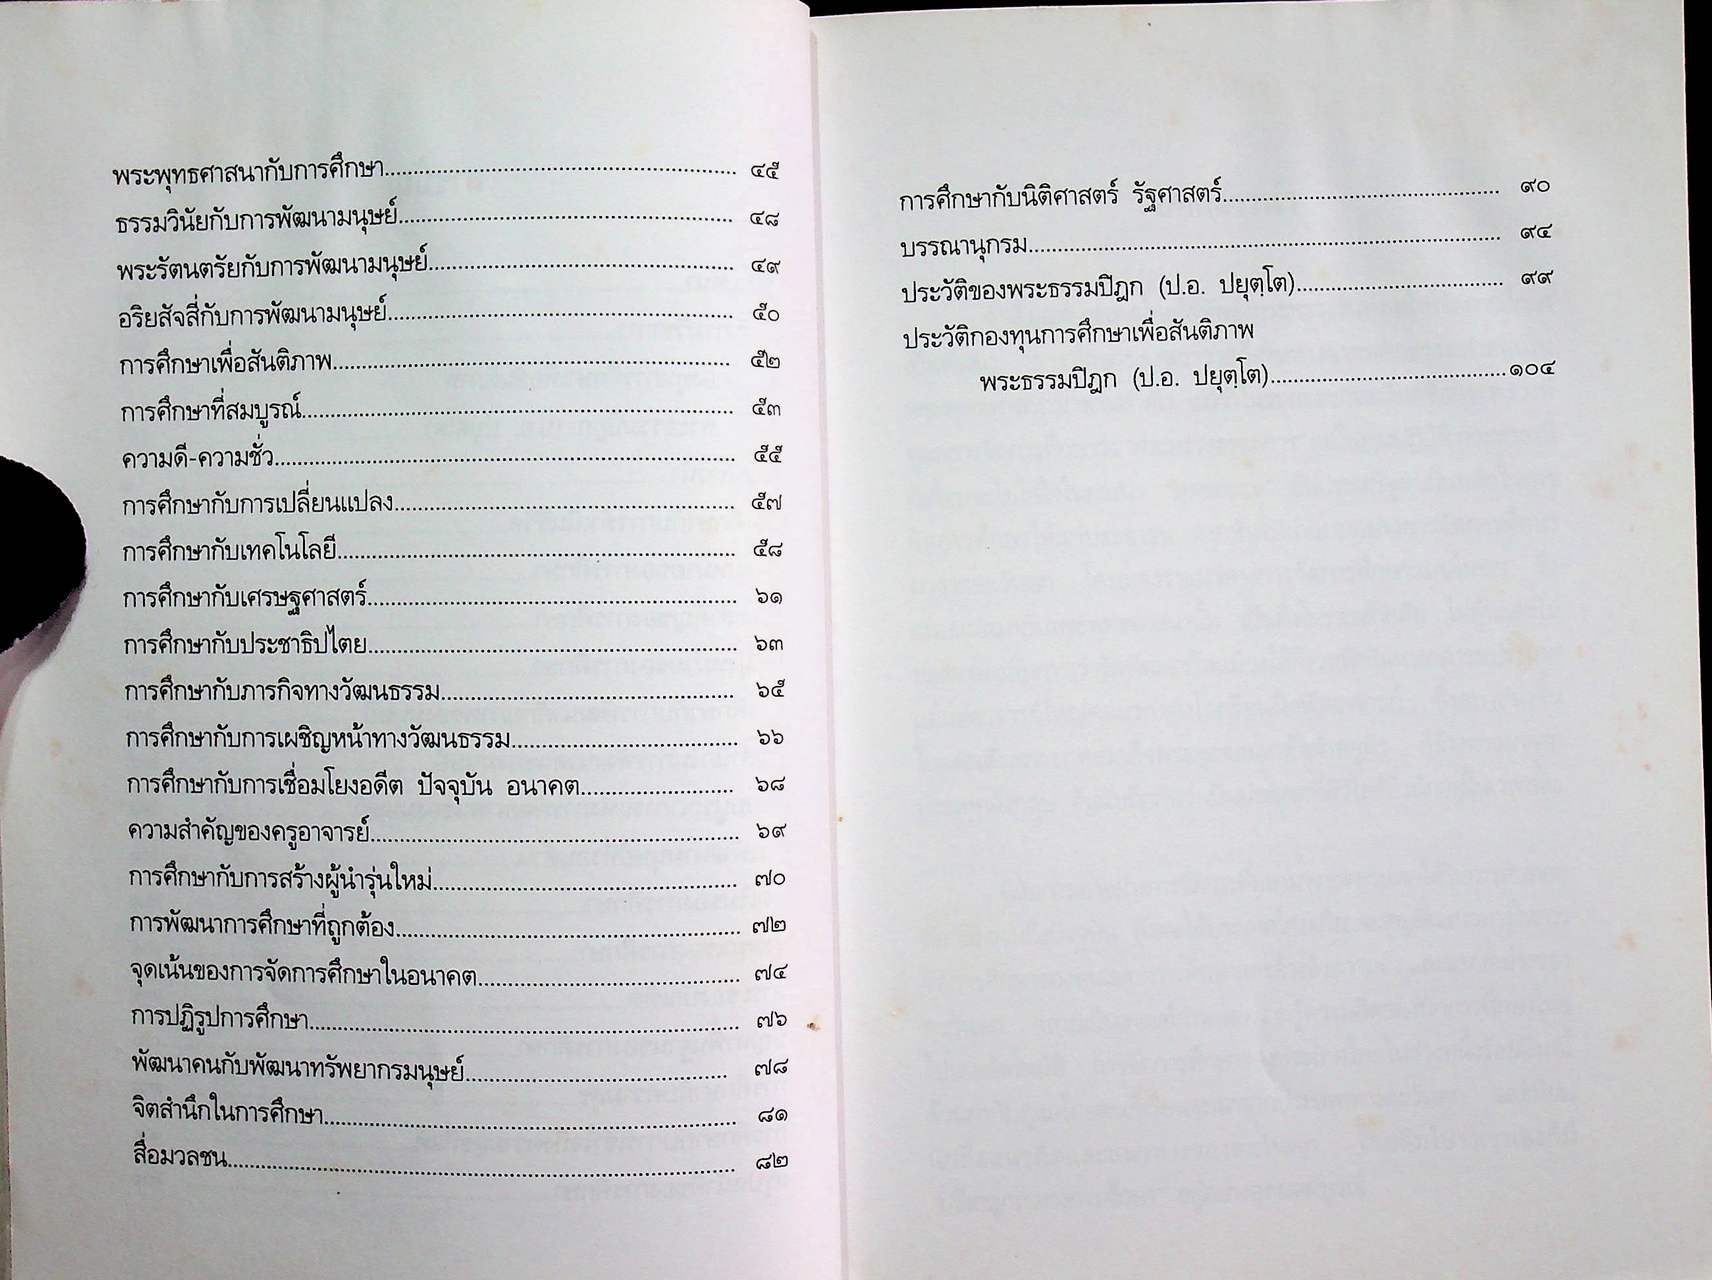 พระพุทธศาสนากับการศึกษา.......... ๔๕
ธรรมวินัยกับการพัฒนามนุษย์.......... ๔๘
พระรัตนตรัยกับการพัฒนามนุษย์.......... ๔๙
อริยสัจสี่กับการพัฒนามนุษย์.......... ๕๐
การศึกษาเพื่อสันติภาพ.......... ๕๒
การศึกษาที่สมบูรณ์.......... ๕๓
ความดี-ความชั่ว.......... ๕๕
การศึกษากับการเปลี่ยนแปลง.......... ๕๗
การศึกษากับเทคโนโลยี.......... ๕๘
การศึกษากับเศรษฐศาสตร์.......... ๖๑
การศึกษากับประชาธิปไตย.......... ๖๓
การศึกษากับภารกิจทางวัฒนธรรม.......... ๖๕
การศึกษากับการเผชิญหน้าทางวัฒนธรรม.......... ๖๖
การศึกษากับการเชื่อมโยงอดีต ปัจจุบัน อนาคต.......... ๖๘
ความสำคัญของครูอาจารย์.......... ๖๙
การศึกษากับการสร้างผู้นำรุ่นใหม่.......... ๗๐
การพัฒนาการศึกษาที่ถูกต้อง.......... ๗๒
จุดเน้นของการจัดการศึกษาในอนาคต.......... ๗๔
การปฏิรูปการศึกษา.......... ๗๖
พัฒนาคนกับพัฒนาทรัพยากรมนุษย์.......... ๗๘
จิตสำนึกในการศึกษา.......... ๘๑
สื่อมวลชน.......... ๘๒
การศึกษากับนิติศาสตร์ รัฐศาสตร์.......... ๙๐
บรรณานุกรม.......... ๙๔
ประวัติของพระธรรมปิฎก (ป.อ. ปยุตฺโต).......... ๙๙
ประวัติกองทุนการศึกษาเพื่อสันติภาพ
พระธรรมปิฎก (ป.อ. ปยุตฺโต)..........๑๐๔